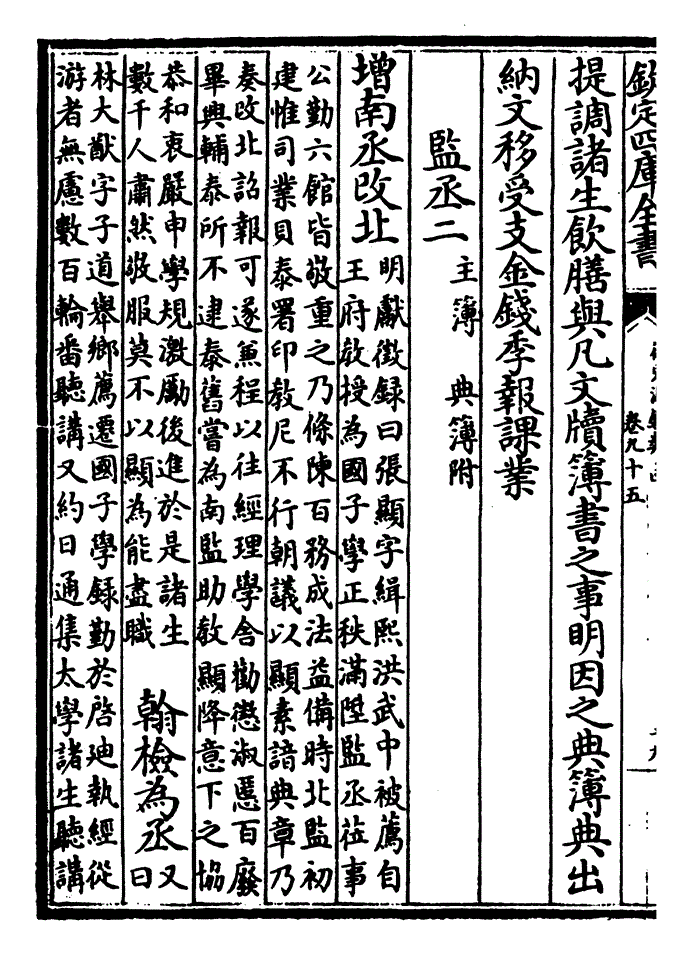 欽定四庫全書
卷九十五
提調諸生飲膳與凡文牘簿書之事明因之典簿典出
納文移受支金錢季報課業
監丞二 主簿 典簿附
增南丞改北
明獻徵録曰張顯字緝熙洪武中被薦自
王府教授為國子學正秩滿陞監丞莅事
公勤六館皆敬重之乃條陳百務成法益備時北監初
建惟司業貝泰署印教尼不行朝議以顯素諳典章乃
奏改北詔報可遂兼程以往經理學舍勸懲淑慝百廢
畢興輔泰所不逮泰舊嘗為南監助教顯降意下之協
恭和衷嚴申學規激勵後進於是諸生
數千人肅然敬服莫不以顯為能盡職
翰檢為丞
又
曰
林大猷字子道舉鄉薦遷國子學録勤於啓廸執經從
游者無慮數百輪番聽講又約日通集太學諸生聽講